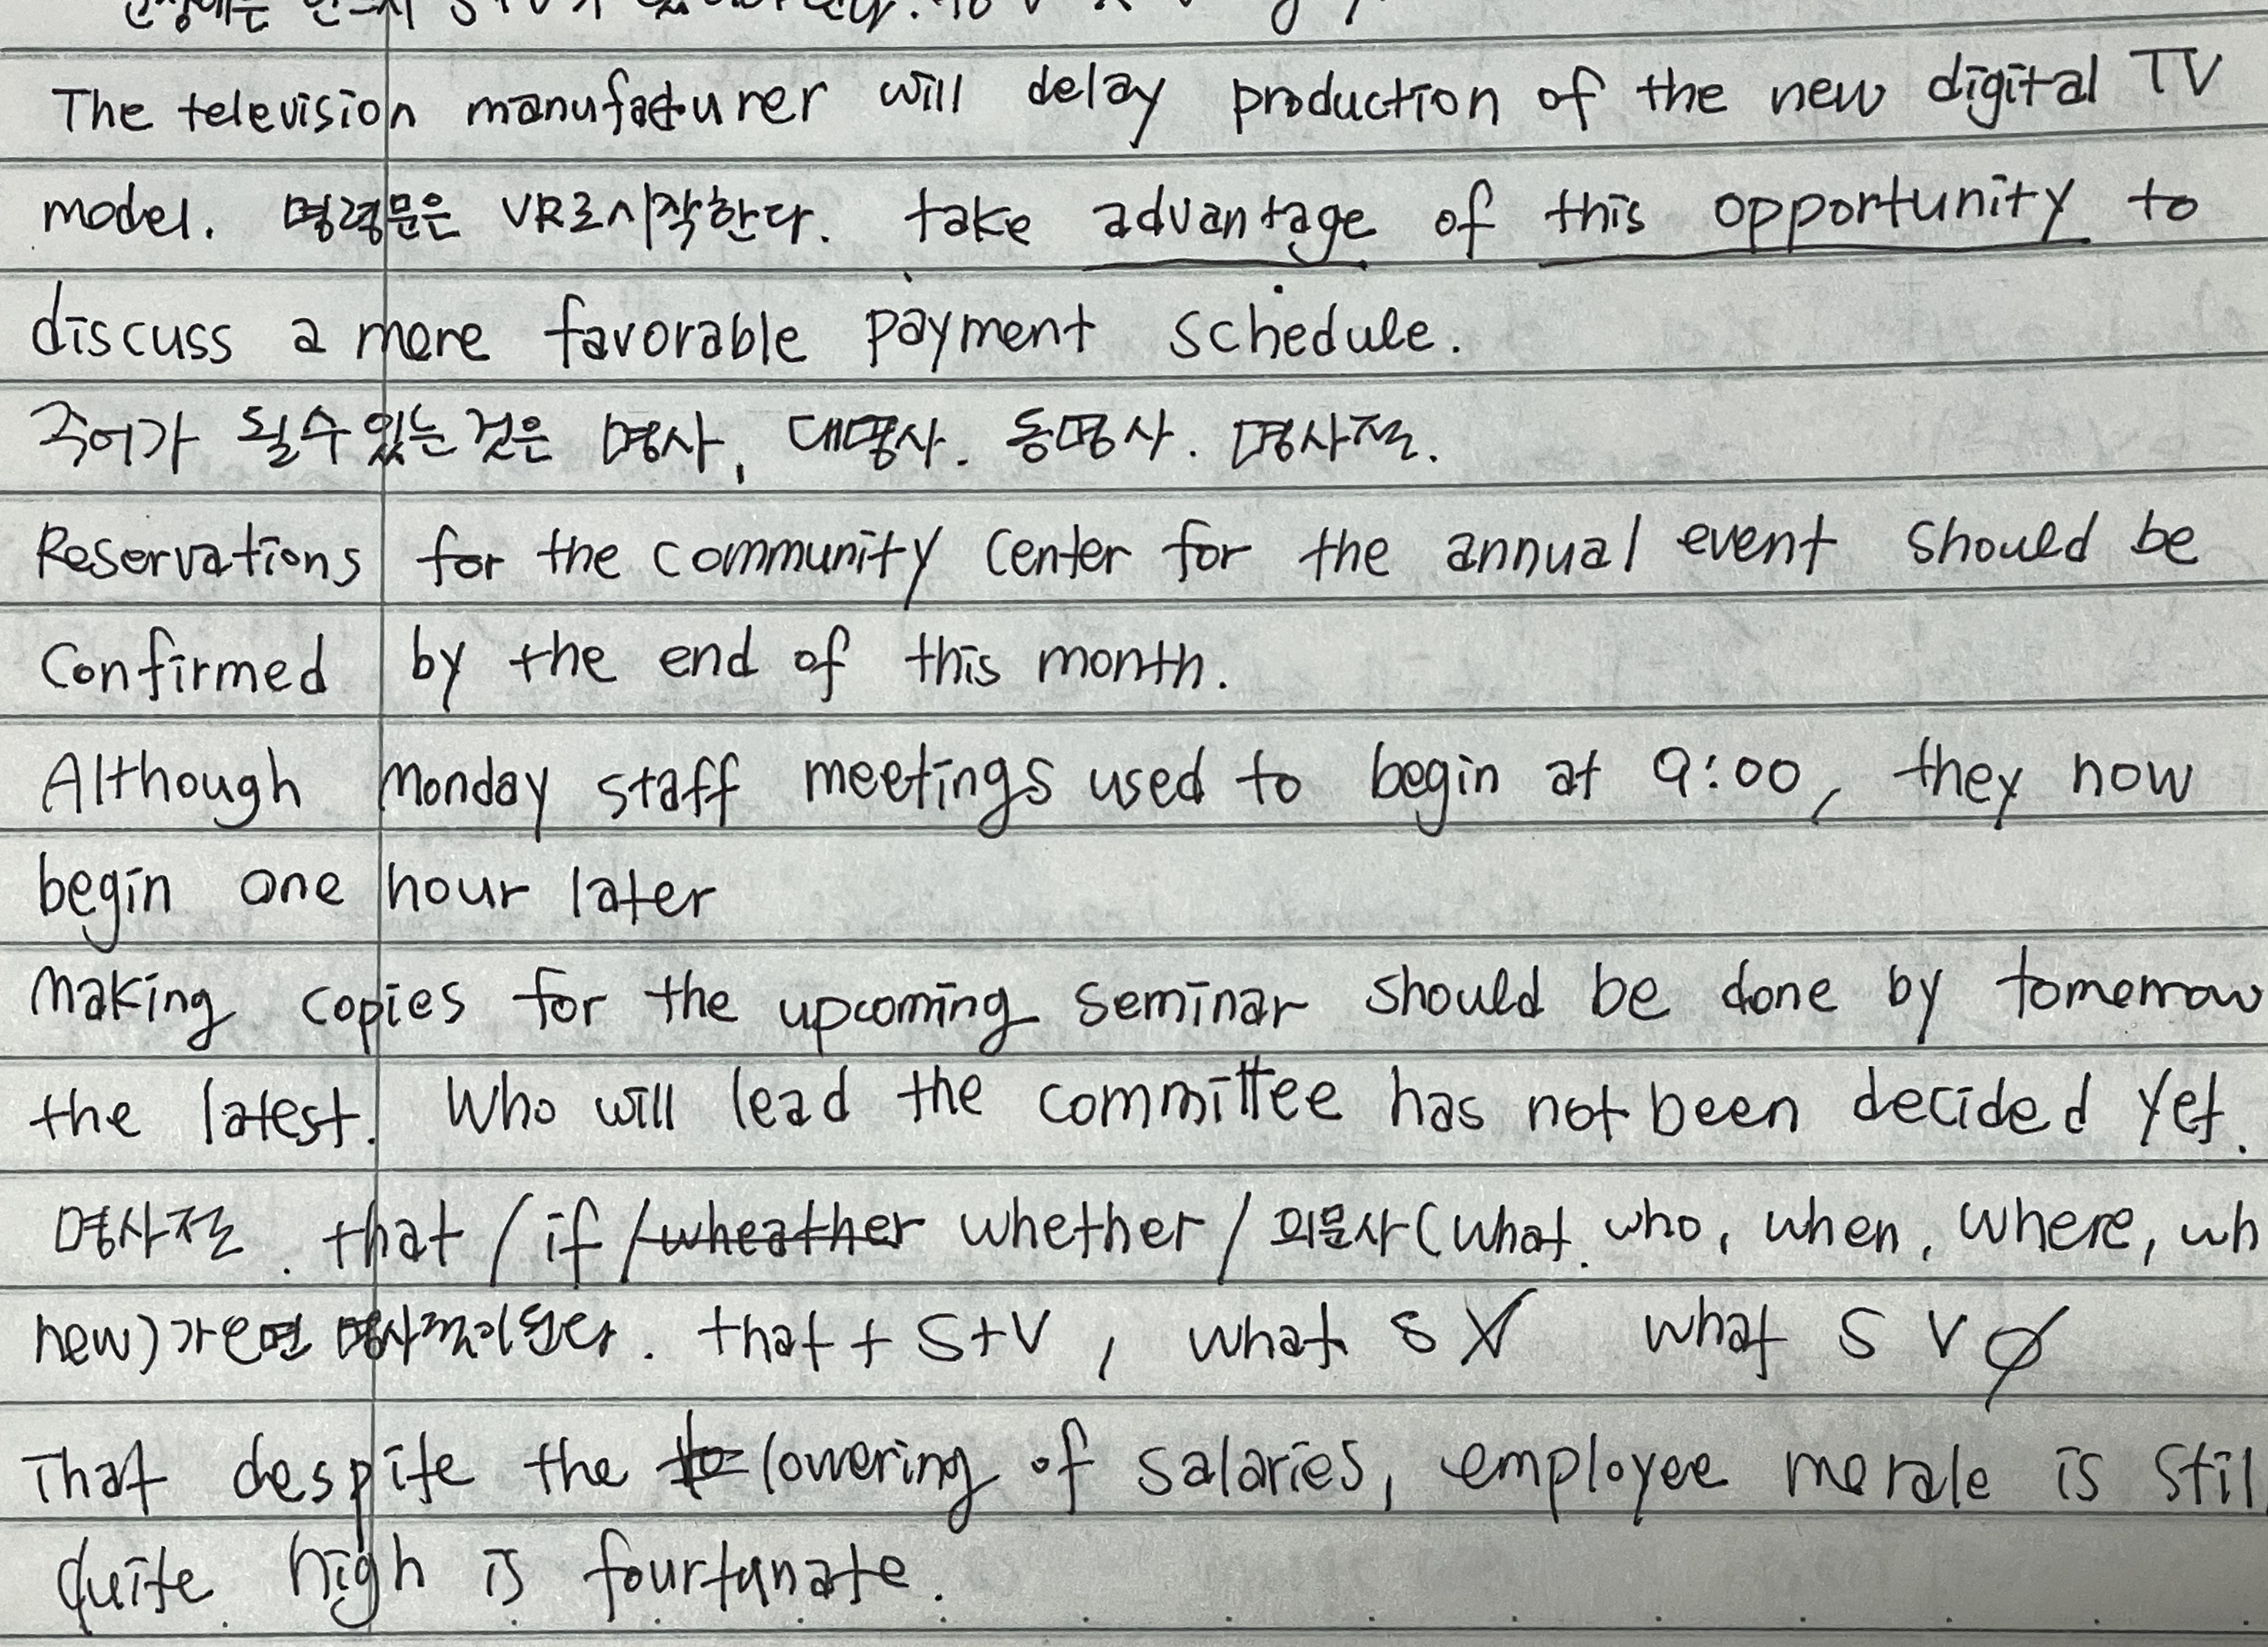 The television manufacturer will delay production of the new digital TV
model. 명령문은 VR로시작한다. take advantage of this opportunity to
discuss a more favorable payment schedule.
주어가 될수있는것은 명사, 대명사. 동명사. 명사절.
Reservations for the community center for the annual event should be
Confirmed by the end of this month.
Although Monday staff meetings used to begin at 9:00, they now
begin one hour later
Making copies for the upcoming seminar should be done by tomorrow
the latest. Who will lead the committee has not been decided yet.
명사절. that / if / wheather whether / 의문사(what. who, when, where, wh
new)가오면 명사절이된다. that + S+V, what S V what S V
That despite the lowering of salaries, employee morale is stil
quite high is fourtunate.